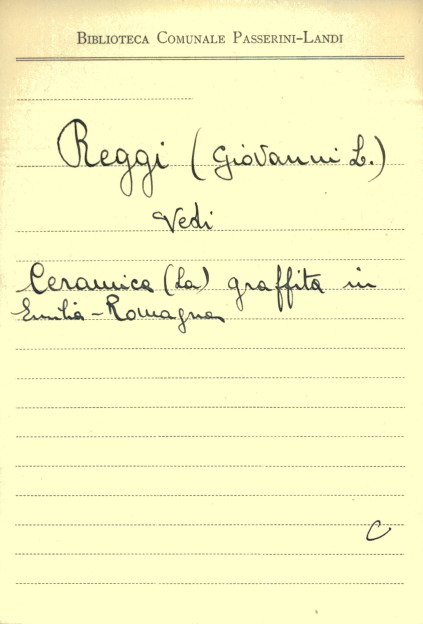 BIBLIOTECA COMUNALE PASSERINI-LANDI
Reggi (Giovanni L.)
Vedi
Ceramica (La) graffita in
Emilia-Romagna
C